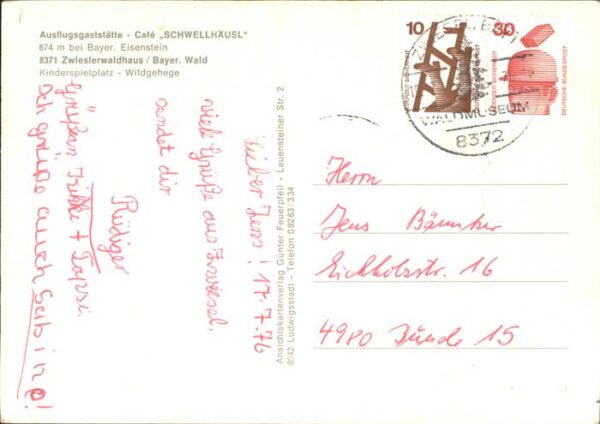 Ausflugsgaststätte - Café „SCHWELLHÄUSL"
674 m bei Bayer. Eisenstein
8371 Zwieslerwaldhaus / Bayer. Wald
Kinderspielplatz - Wildgehege
Lieber Jens! 17.7.76
viele Grüße aus Zwiesel,
sendet dir
Rüdiger
Grüßen Isikke + Tapsi.
Ich grüße auch
Ansichtskartenverlag Günter Feuerpfeil - Lauensteiner Str. 2
8642 Ludwigsstadt - Telefon 09263/334
10
30
DEUTSCHE BUNDESPOST
ZWIESEL, BAY
WALDMUSEUM
8372
Herrn
Jens Bäunker
Eichholzstr. 16
4980 Bünde 15